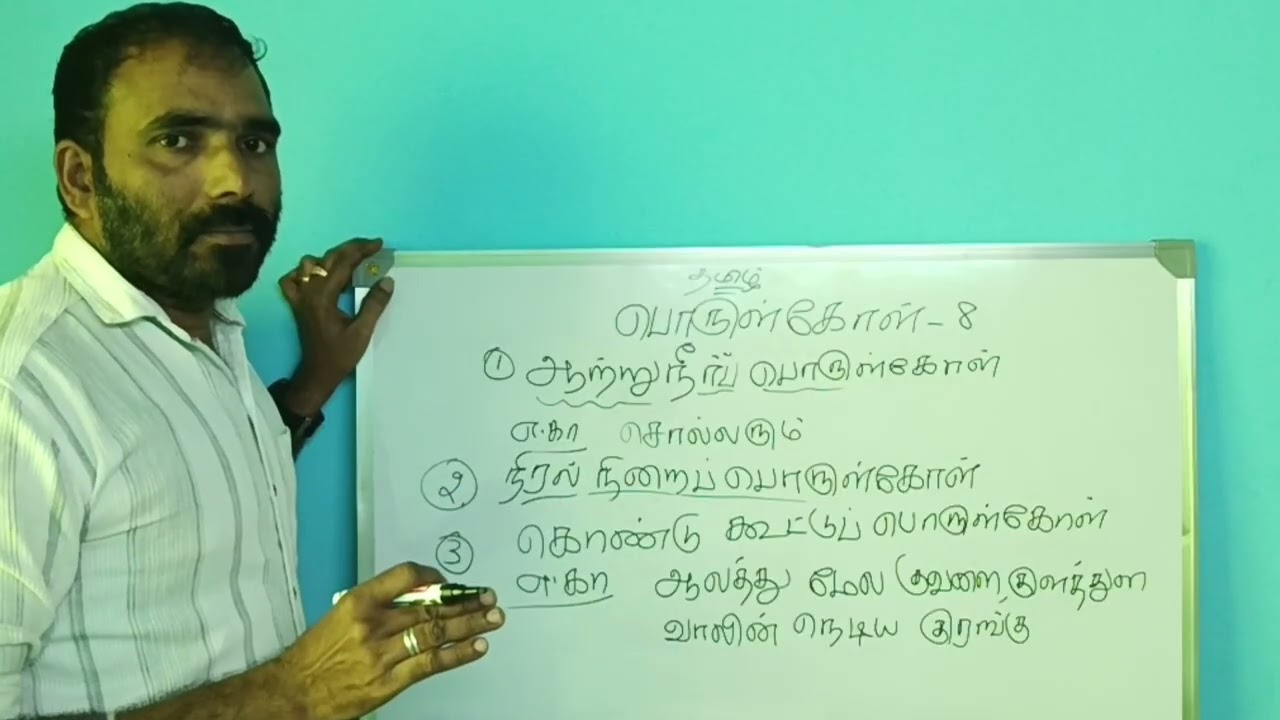 தமிழ்
பொருள்கோள் - 8
① ஆற்றுநீர்ப் பொருள்கோள்
எ.கா சொல்லரும்
② நிரல் நிறைப் பொருள்கோள்
③ கொண்டு கூட்டுப் பொருள்கோள்
எ.கா ஆலத்து மேல குவளை குளத்துள
வாலின் நெடிய குரங்கு